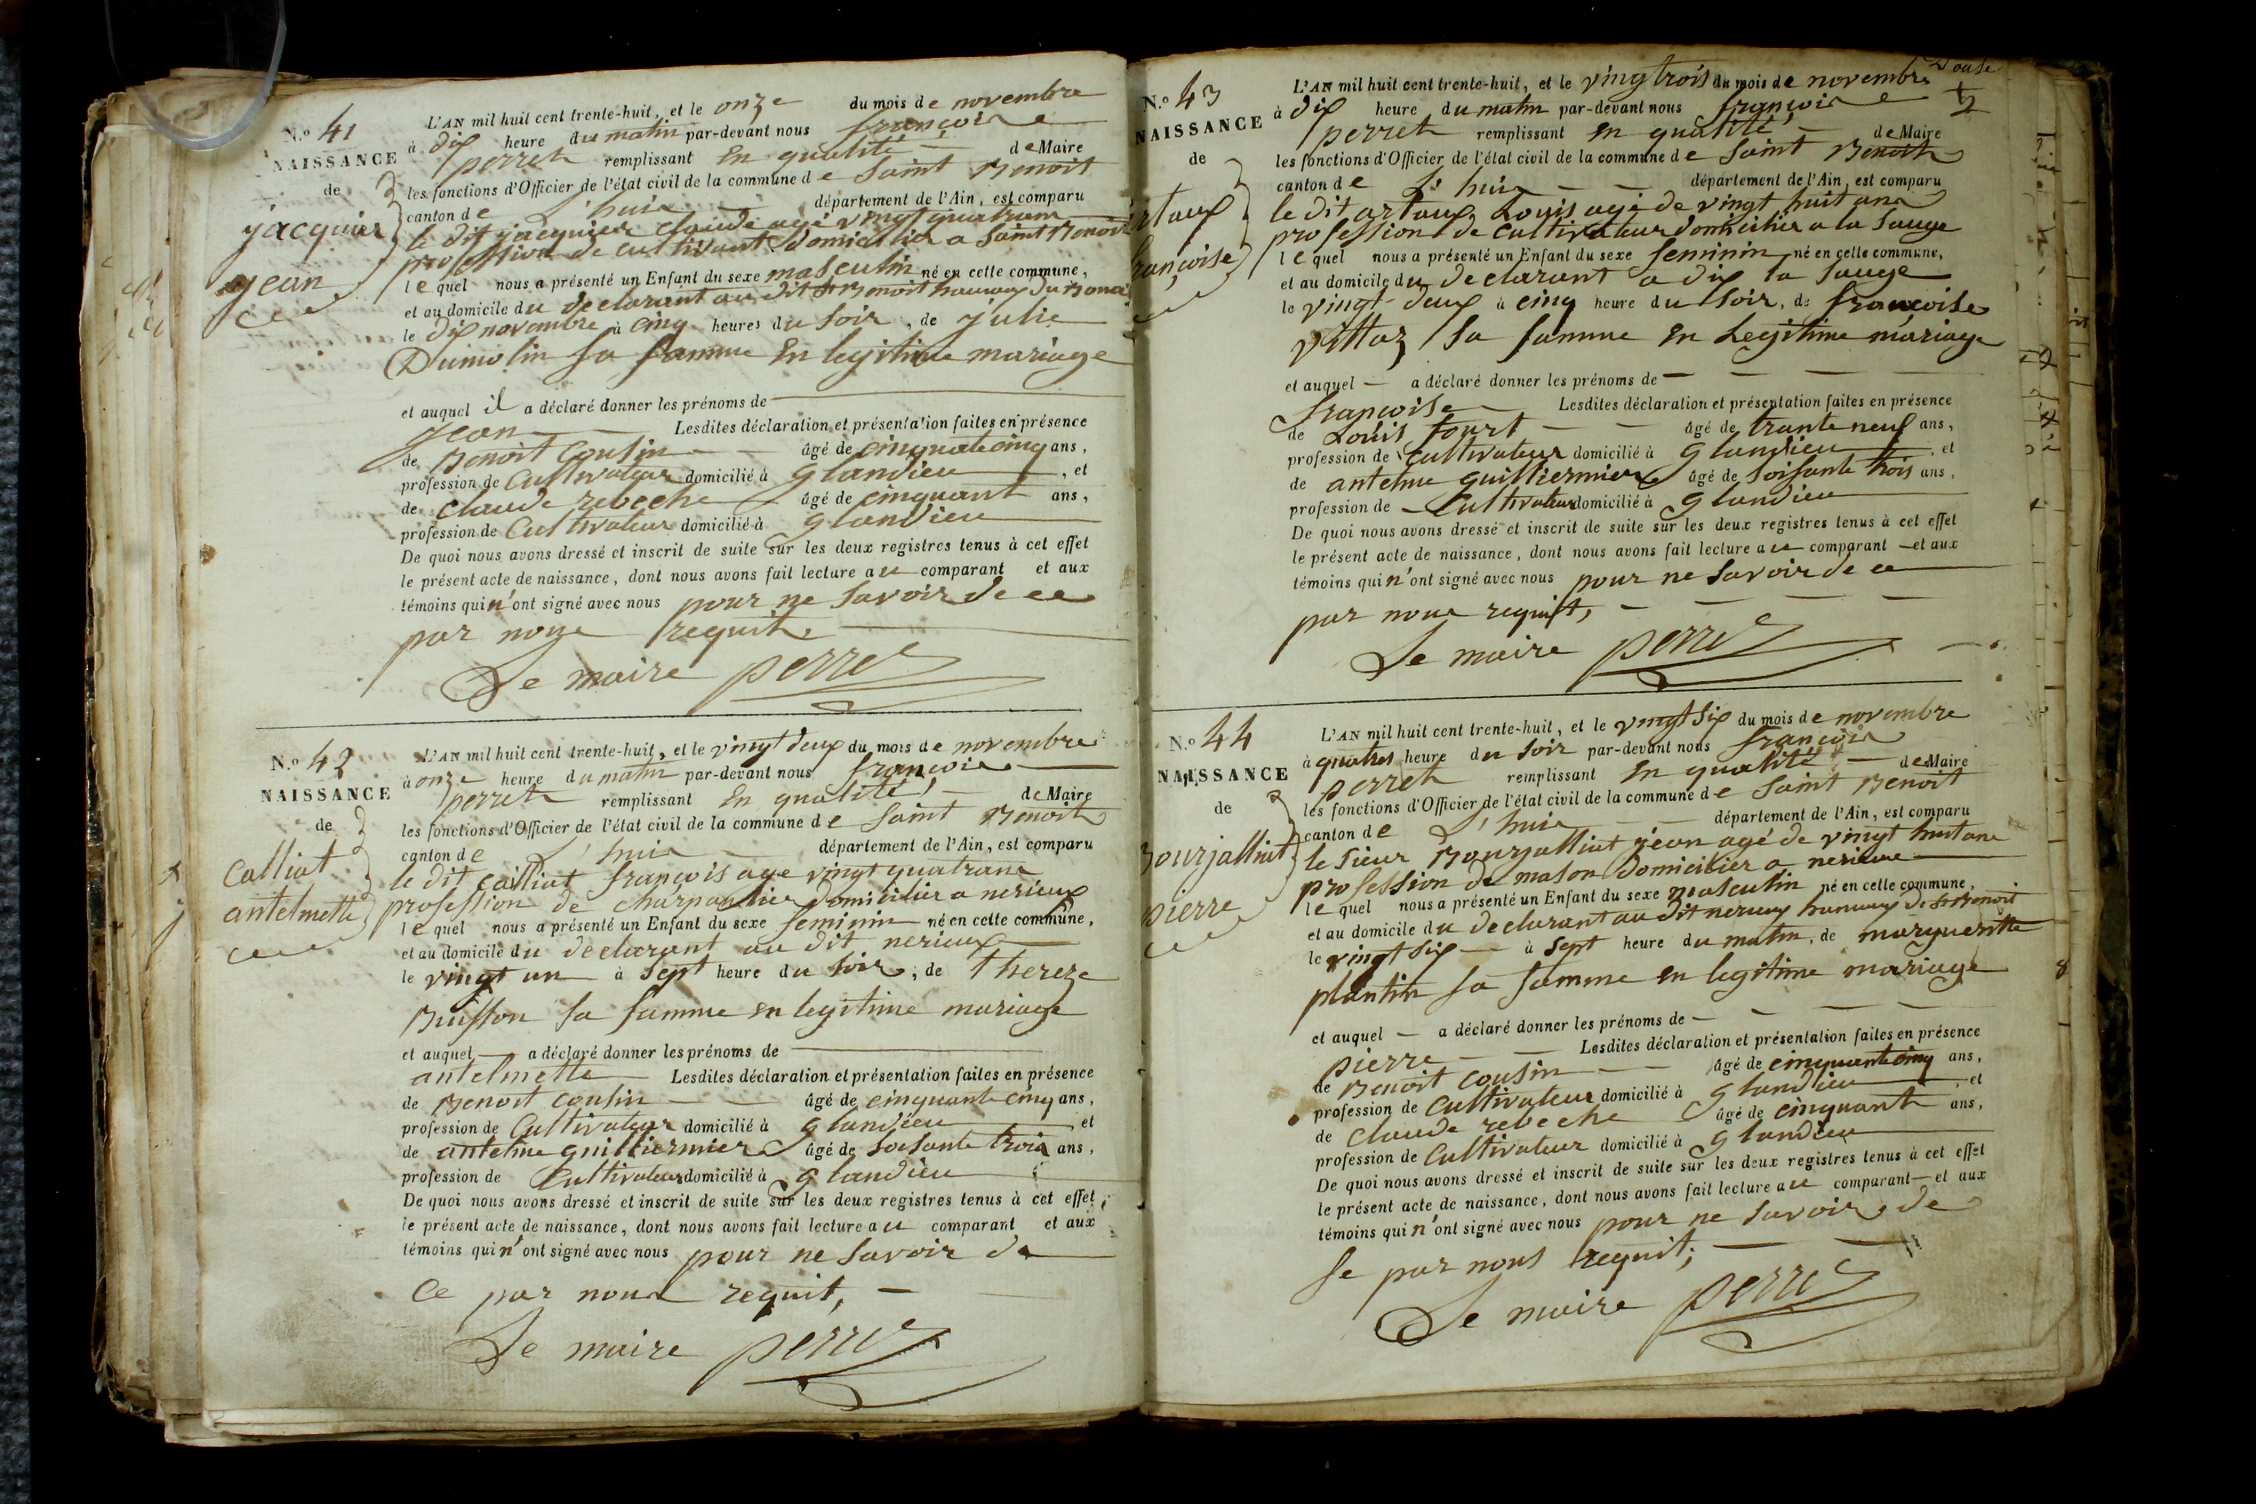 N.o 41
NAISSANCE
de
jacquier
jean
L'AN mil huit cent trente-huit, et le onze du mois de novembre
à dix heure du matin par-devant nous françois
perret remplissant en qualité de Maire
les fonctions d'Officier de l'état civil de la commune de Saint Benoit
canton de L'huis département de l'Ain, est comparu
le dit jacquier claude agé vingt quatrans
profession de cultivant domicilier a Saint Benoit
lequel nous a présenté un Enfant du sexe masculin né en cette commune,
et au domicile du declarant au dit St Benoit hameau du
le dix novembre à cinq heures du soir, de julie
Dumolin sa famme en legitime mariage
et auquel il a déclaré donner les prénoms de
jean Lesdites déclaration et présentation faites en présence
de Benoit cousin âgé de cinquantecinq ans,
profession de Cultivateur domicilié à glandieu, et
de claude rebeche âgé de cinquant ans,
profession de Cultivateur domicilié à glandieu
De quoi nous avons dressé et inscrit de suite sur les deux registres tenus à cet effet
le présent acte de naissance, dont nous avons fait lecture au comparant et aux
témoins qui n'ont signé avec nous pour ne savoir de ce
par nous requit.
Le maire perret
N.o 42
NAISSANCE
de
Calliat
antelmette
L'AN mil huit cent trente-huit, et le vingt deux du mois de novembre
à onze heure du matin par-devant nous françois
perret remplissant en qualité, de Maire
les fonctions d'Officier de l'état civil de la commune de Saint Benoit
canton de L'huis département de l'Ain, est comparu
le dit calliat françois age vingt quatrans
profession de charpantier domicilier a nerieux
lequel nous a présenté un Enfant du sexe feminin né en cette commune,
et au domicile du declarant au dit nerieux
le vingt un à sept heure du soir, de thereze
Buisson sa famme en legitime mariage
et auquel a déclaré donner les prénoms de
antelmette Lesdites déclaration et présentation faites en présence
de Benoit cousin âgé de cinquante cinq ans,
profession de Cultivateur domicilié à glandieu et
de antelme guilliermier âgé de soisante trois ans,
profession de Cultivateur domicilié à glandieu
De quoi nous avons dressé et inscrit de suite sur les deux registres tenus à cet effet
le présent acte de naissance, dont nous avons fait lecture au comparant et aux
témoins qui n'ont signé avec nous pour ne savoir de
Ce par nous requit,
Le maire perret
N.o 43
NAISSANCE
de
artaux
françoise
L'AN mil huit cent trente-huit, et le vingtrois du mois de novembre
à dix heure du matin par-devant nous françois
perret remplissant en qualité, de Maire
les fonctions d'Officier de l'état civil de la commune de Saint Benoit
canton de L'huis département de l'Ain, est comparu
le dit artaux Louis agé de vingt huit ans
profession de cultivateur domicilier a la Sauge
lequel nous a présenté un Enfant du sexe feminin né en cette commune,
et au domicile du declarant a dix la sauge
le vingt deux à cinq heure du soir, de françoise
vittoz sa famme en Legitime mariage
et auquel a déclaré donner les prénoms de
françoise Lesdites déclaration et présentation faites en présence
de Louis fourt âgé de trante neuf ans,
profession de cultivateur domicilié à glandieu, et
de antelme guilliermier âgé de soisante trois ans,
profession de Cultivateur domicilié à glandieu
De quoi nous avons dressé et inscrit de suite sur les deux registres tenus à cet effet
le présent acte de naissance, dont nous avons fait lecture au comparant et aux
témoins qui n'ont signé avec nous pour ne savoir de ce
par nous requit,
Le maire perret
N.o 44
NAISSANCE
de
Bourjalliat
pierre
L'AN mil huit cent trente-huit, et le vingt six du mois de novembre
à quatres heure du soir par-devant nous françois
perret remplissant en qualité de Maire
les fonctions d'Officier de l'état civil de la commune de Saint Benoit
canton de L'huis département de l'Ain, est comparu
le Sieur Bourjalliat jean agé de vingt huit ans
profession de mason domicilier a nerieux
lequel nous a présenté un Enfant du sexe masculin né en cette commune,
et au domicile du declarant au dit nerieux hameau de St Benoit
le vingt six à sept heure du matin, de margueritte
plantin sa famme en legitime mariage
et auquel a déclaré donner les prénoms de
pierre Lesdites déclaration et présentation faites en présence
de Benoit cousin âgé de cinquantecinq ans,
profession de cultivateur domicilié à glandieu, et
de claude rebeche âgé de cinquant ans,
profession de Cultivateur domicilié à glandieu
De quoi nous avons dressé et inscrit de suite sur les deux registres tenus à cet effet
le présent acte de naissance, dont nous avons fait lecture au comparant et aux
témoins qui n'ont signé avec nous pour ne savoir de
se par nous requit;
Le maire perret